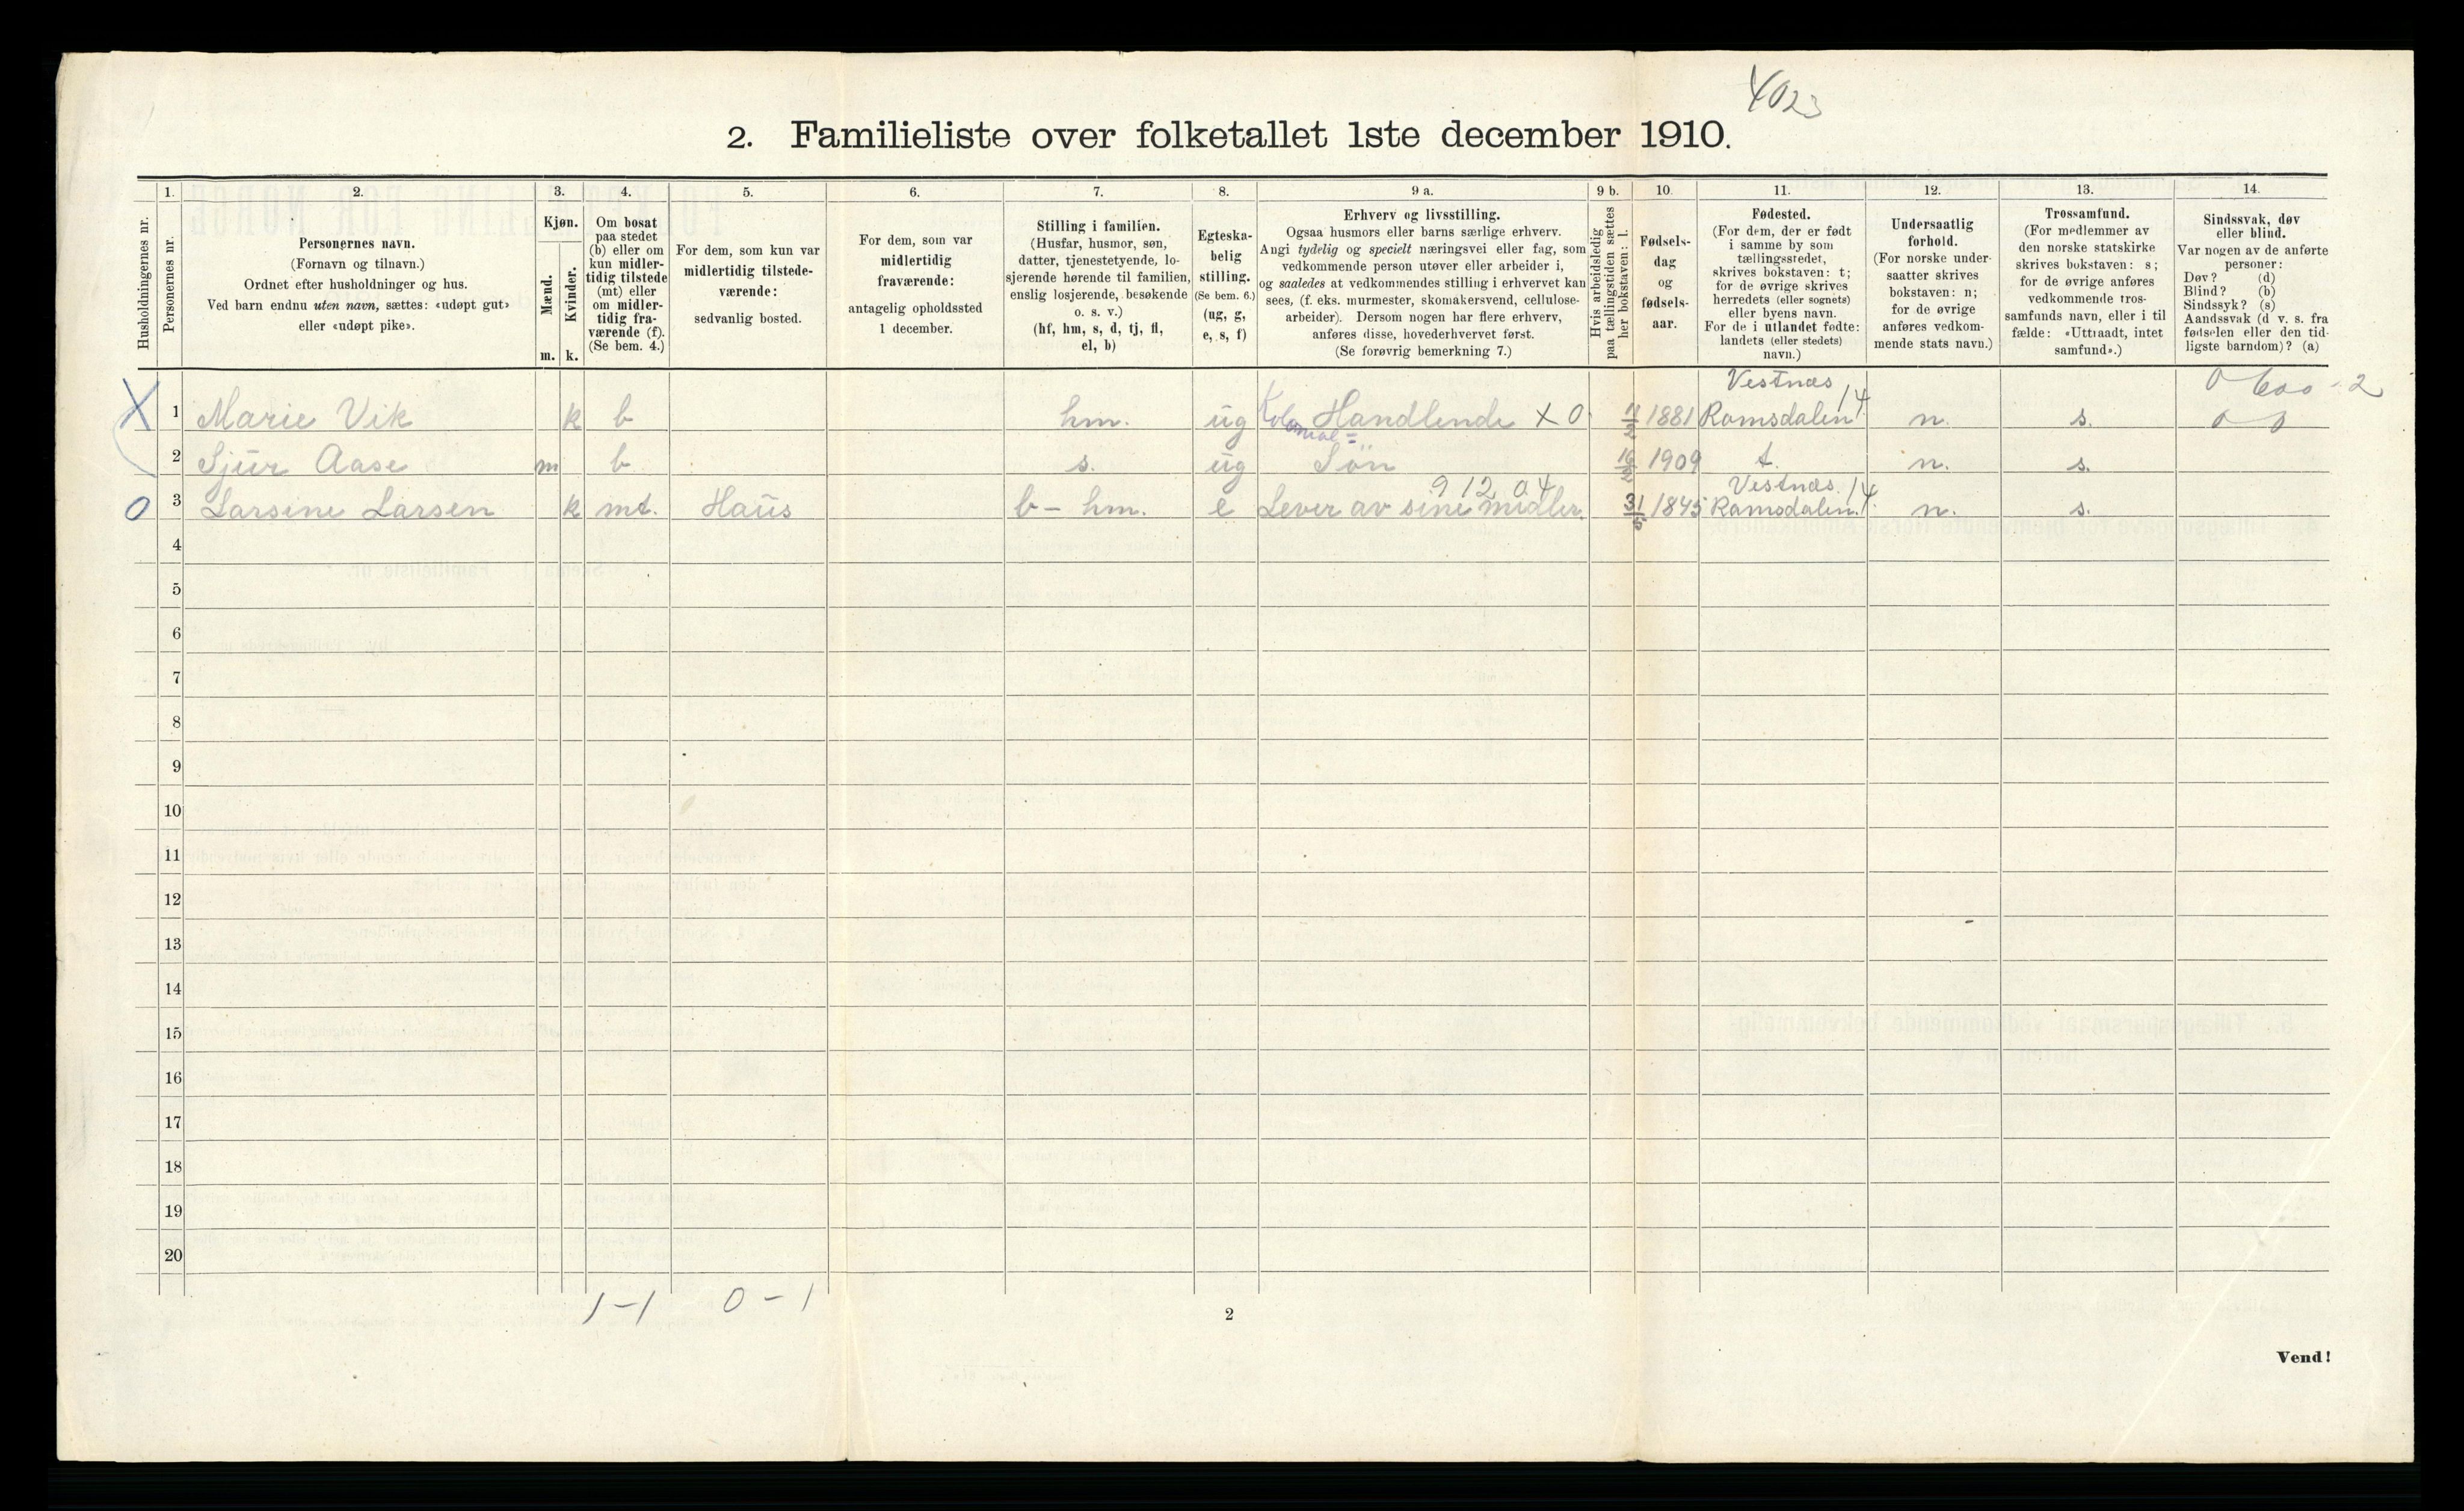 4023
2. Familieliste over folketallet 1ste december 1910.
Husholdningernes nr.
1.
Personernes nr.
2.
Personernes navn.
(Fornavn og tilnavn.)
Ordnet efter husholdninger og hus.
Ved barn endnu uten navn, sættes: «udøpt gut»
eller «udøpt pike».
3.
Kjøn.
Mænd.
Kvinder.
m. k.
4.
Om bosat
paa stedet
(b) eller om
kun midler-
tidig tilstede
(mt) eller
om midler-
tidig fra-
værende (f).
(Se bem. 4.)
5.
For dem, som kun var
midlertidig tilstede-
værende:
sedvanlig bosted.
6.
For dem, som var
midlertidig
fraværende:
antagelig opholdssted
1 december.
7.
Stilling i familien.
(Husfar, husmor, søn,
datter, tjenestetyende, lo-
sjerende hørende til familien,
enslig losjerende, besøkende
o. s. v.)
(hf, hm, s, d, tj, fl,
el, b)
8.
Egteska-
belig
stilling.
(Se bem. 6.)
(ug, g,
e, s, f)
9 a.
Erhverv og livsstilling.
Ogsaa husmors eller barns særlige erhverv.
Angi tydelig og specielt næringsvei eller fag, som
vedkommende person utøver eller arbeider i,
og saaledes at vedkommendes stilling i erhvervet kan
sees, (f. eks. murmester, skomakersvend, cellulose-
arbeider). Dersom nogen har flere erhverv,
anføres disse, hovederhvervet først.
(Se forøvrig bemerkning 7.)
9 b.
Hvis arbeidsledig
paa tællingstiden sættes
her bokstaven: l.
10.
Fødsels-
dag
og
fødsels-
aar.
11.
Fødested.
(For dem, der er født
i samme by som
tællingsstedet,
skrives bokstaven: t;
for de øvrige skrives
herredets (eller sognets)
eller byens navn.
For de i utlandet fødte:
landets (eller stedets)
navn.)
12.
Undersaatlig
forhold.
(For norske under-
saatter skrives
bokstaven: n;
for de øvrige
anføres vedkom-
mende stats navn.)
13.
Trossamfund.
(For medlemmer av
den norske statskirke
skrives bokstaven: s;
for de øvrige anføres
vedkommende tros-
samfunds navn, eller i til
fælde: «Uttraadt, intet
samfund».)
14.
Sindssvak, døv
eller blind.
Var nogen av de anførte
personer:
Døv? (d)
Blind? (b)
Sindssyk? (s)
Aandssvak (d v. s. fra
fødselen eller den tid-
ligste barndom)? (a)
Vestnæs
X 1 Marie Vik k b hm. ug Kolonial= Handlende X 0 1881 Romsdalen 14 n. s. 0 0
2 Sjur Aase m b s. ug Søn 16/2 1909 t. n. s.
912 04 Vestnæs. 14
0 3 Larsine Larsen k mt. Haus b - hm. e Lever av sine midler. 31/5 1845 Romsdalen. n. s.
4
5
6
7
8
9
10
11
12
13
14
15
16
17
18
19
20
1-1 0-1
2
Vend!